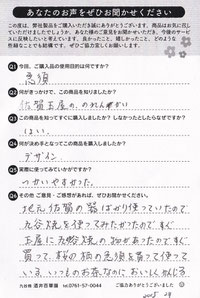 あなたのお声をぜひお聞かせください
この度は、弊社製品をご購入いただき誠にありがとうございます。商品はお気に召し
ていただけましたでしょうか。あなた様のご意見をお聞かせいただき、今後のサービ
スに反映したいと考えています。良かったこと、嬉しかったこと、どのような
些細なことでも結構です。ぜひご協力宜しくお願いします。
Q1 今回、ご購入品の使用目的は何ですか?
急須
Q2 何がきっかけで、この商品を知りましたか?
佐賀玉屋の、のれん
Q3 この商品を知ってすぐに購入しましたか? しなかったとしたらなぜですか?
はい。
Q4 何が決め手となってこの商品を購入しましたか?
デザイン
Q5 実際に使ってみていかがですか?
つかいやすかった。
Q6 その他 ご意見・ご感想があれば、ぜひお聞かせください。
地元佐賀の器ばかり使っていたので
九谷焼を使ってみたかったですすぐ
玉屋に九谷焼の物があったですぐ
買って、桜の柄の急須を買って使って
いる、いつものお茶なのにおいしくかんじる
九谷焼 酒井百華園 tel.0761-57-0044
ご協力ありがとうございました